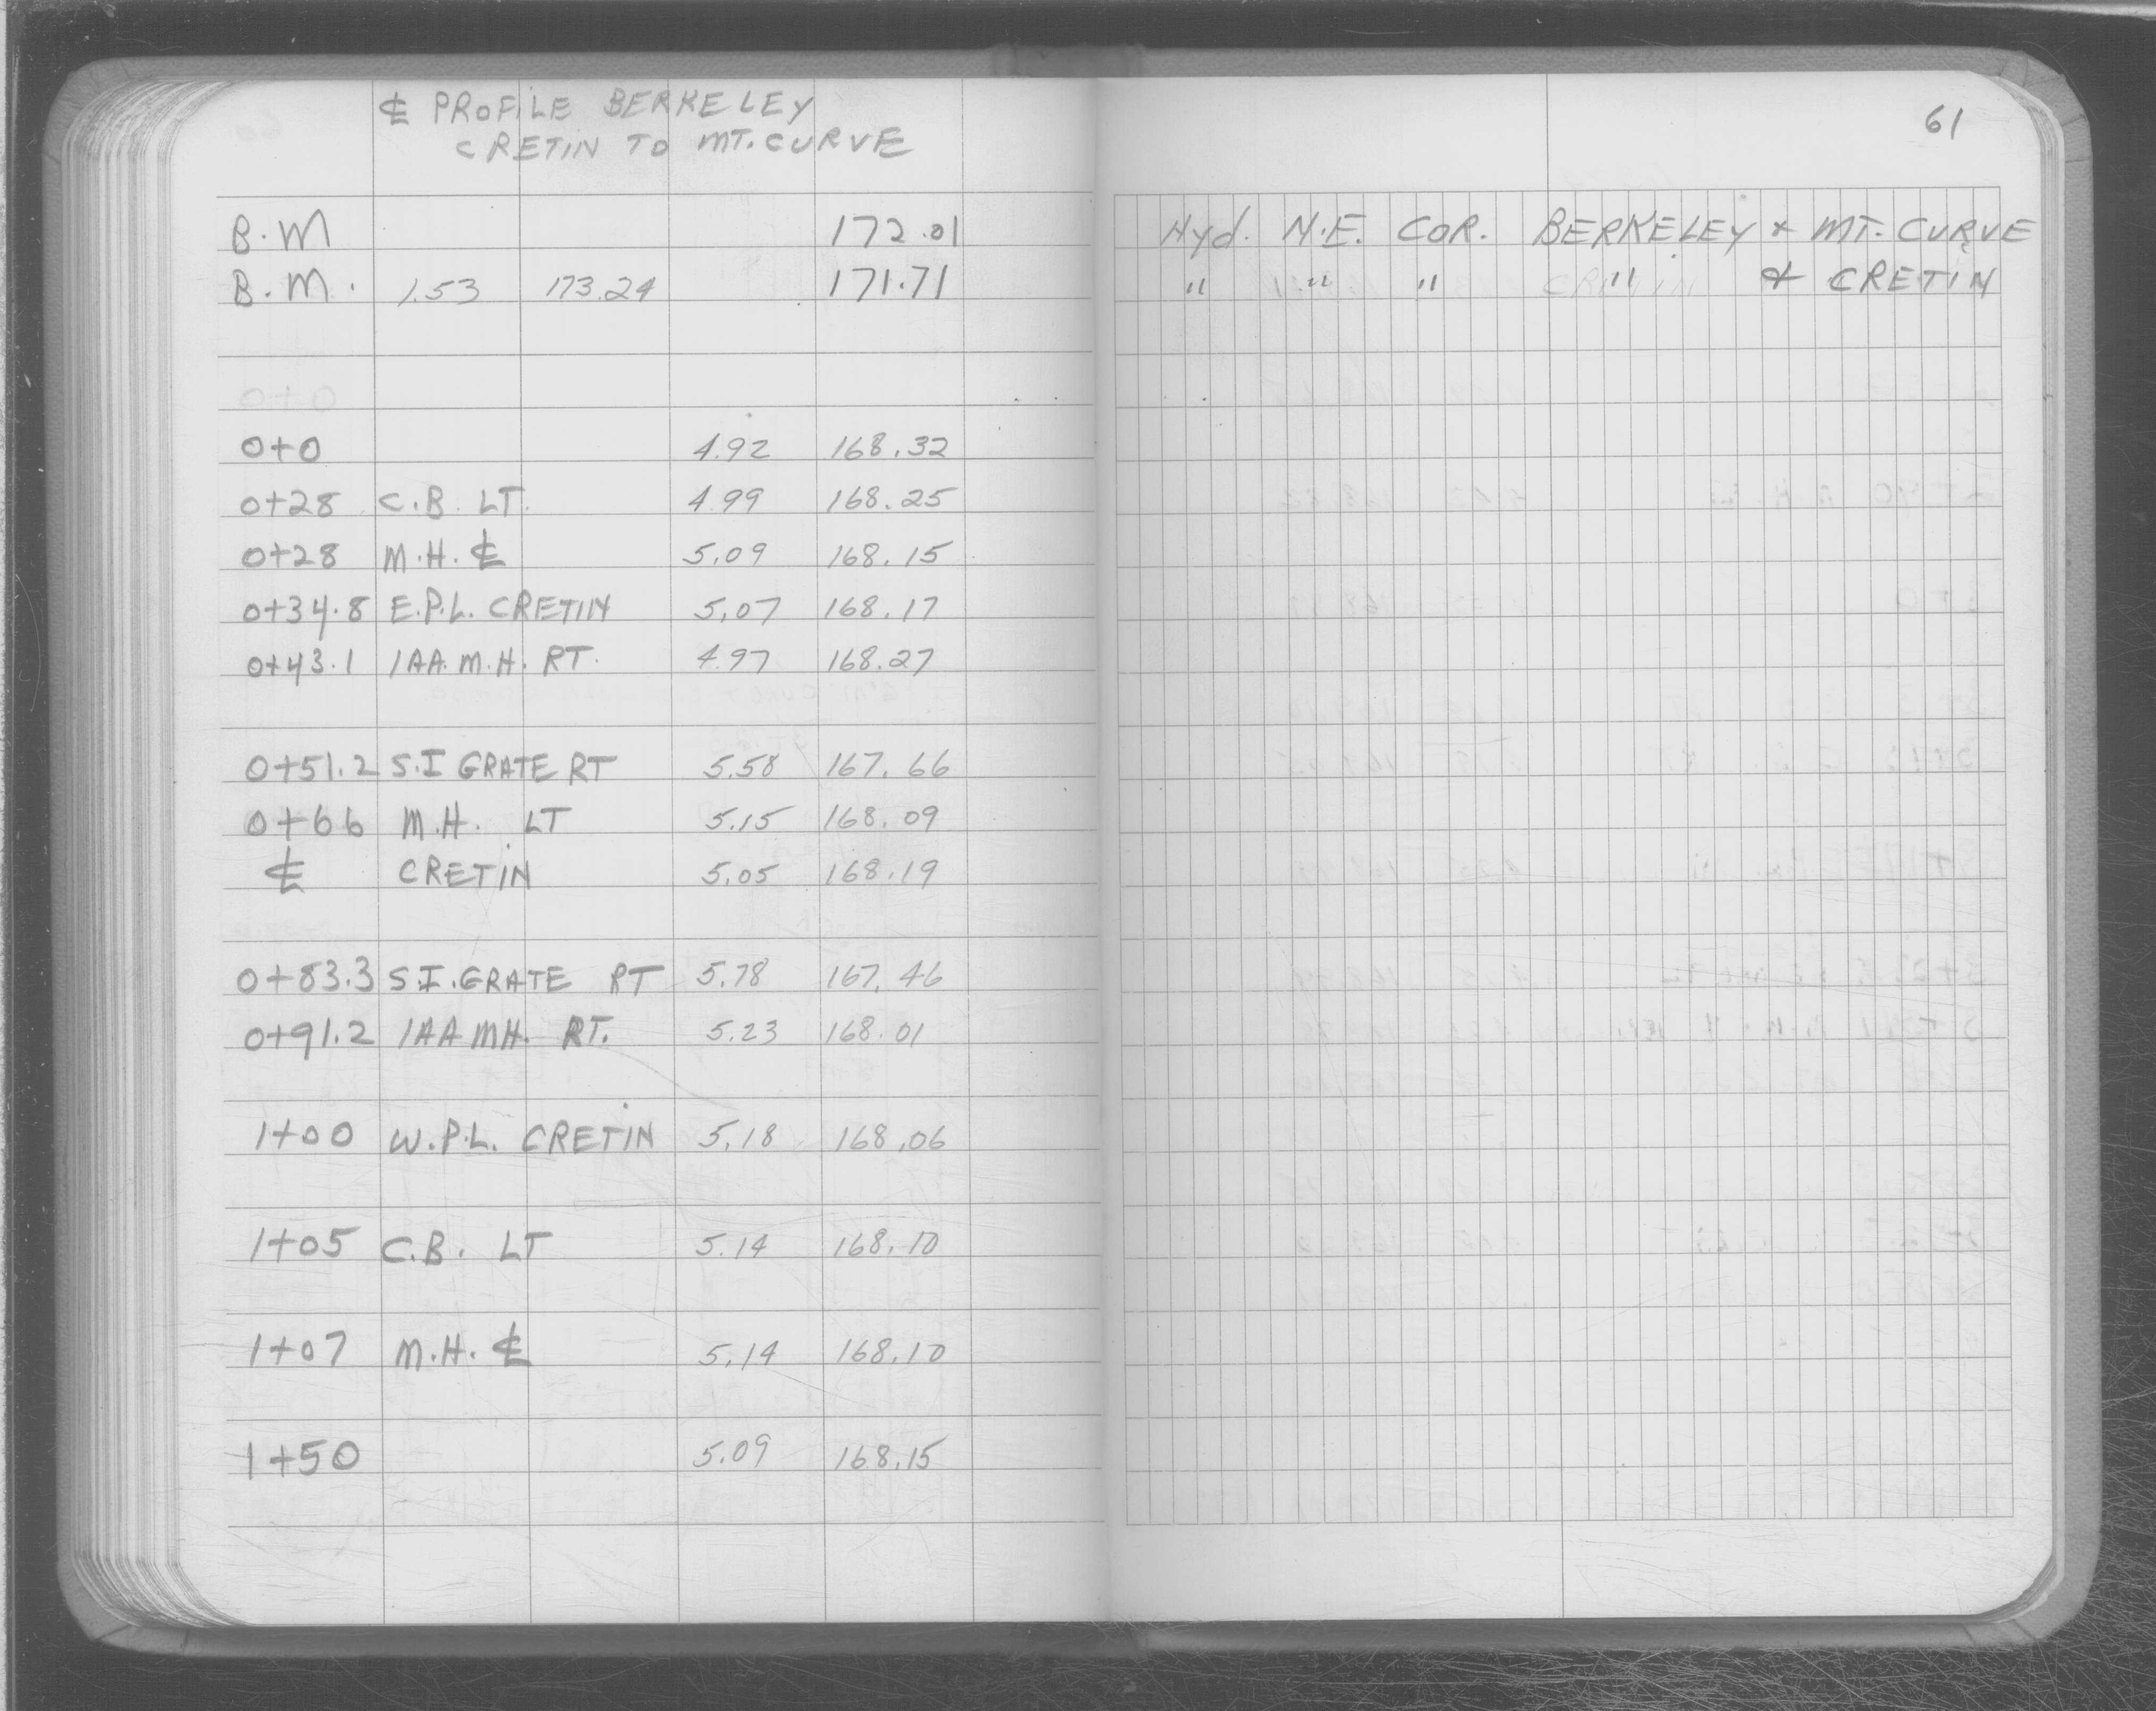 ℄ PROFILE BERKELEY
CRETIN TO MT. CURVE
61
B.M 172.01 Hyd. N.E. COR. BERKELEY & MT. CURVE
B.M. 1.53 173.24 171.71 " " " " & CRETIN
0+0 4.92 168.32
0+28 C.B. LT. 4.99 168.25
0+28 M.H. ℄ 5.09 168.15
0+34.8 E.P.L. CRETIN 5.07 168.17
0+43.1 1AA. M.H. RT. 4.97 168.27
0+51.2 S.I GRATE RT 5.58 167.66
0+66 M.H. LT 5.15 168.09
℄ CRETIN 5.05 168.19
0+83.3 S.I. GRATE RT 5.78 167.46
0+91.2 1AA MH. RT. 5.23 168.01
1+00 W.P.L. CRETIN 5.18 168.06
1+05 C.B. LT 5.14 168.10
1+07 M.H. ℄ 5.14 168.10
1+50 5.09 168.15